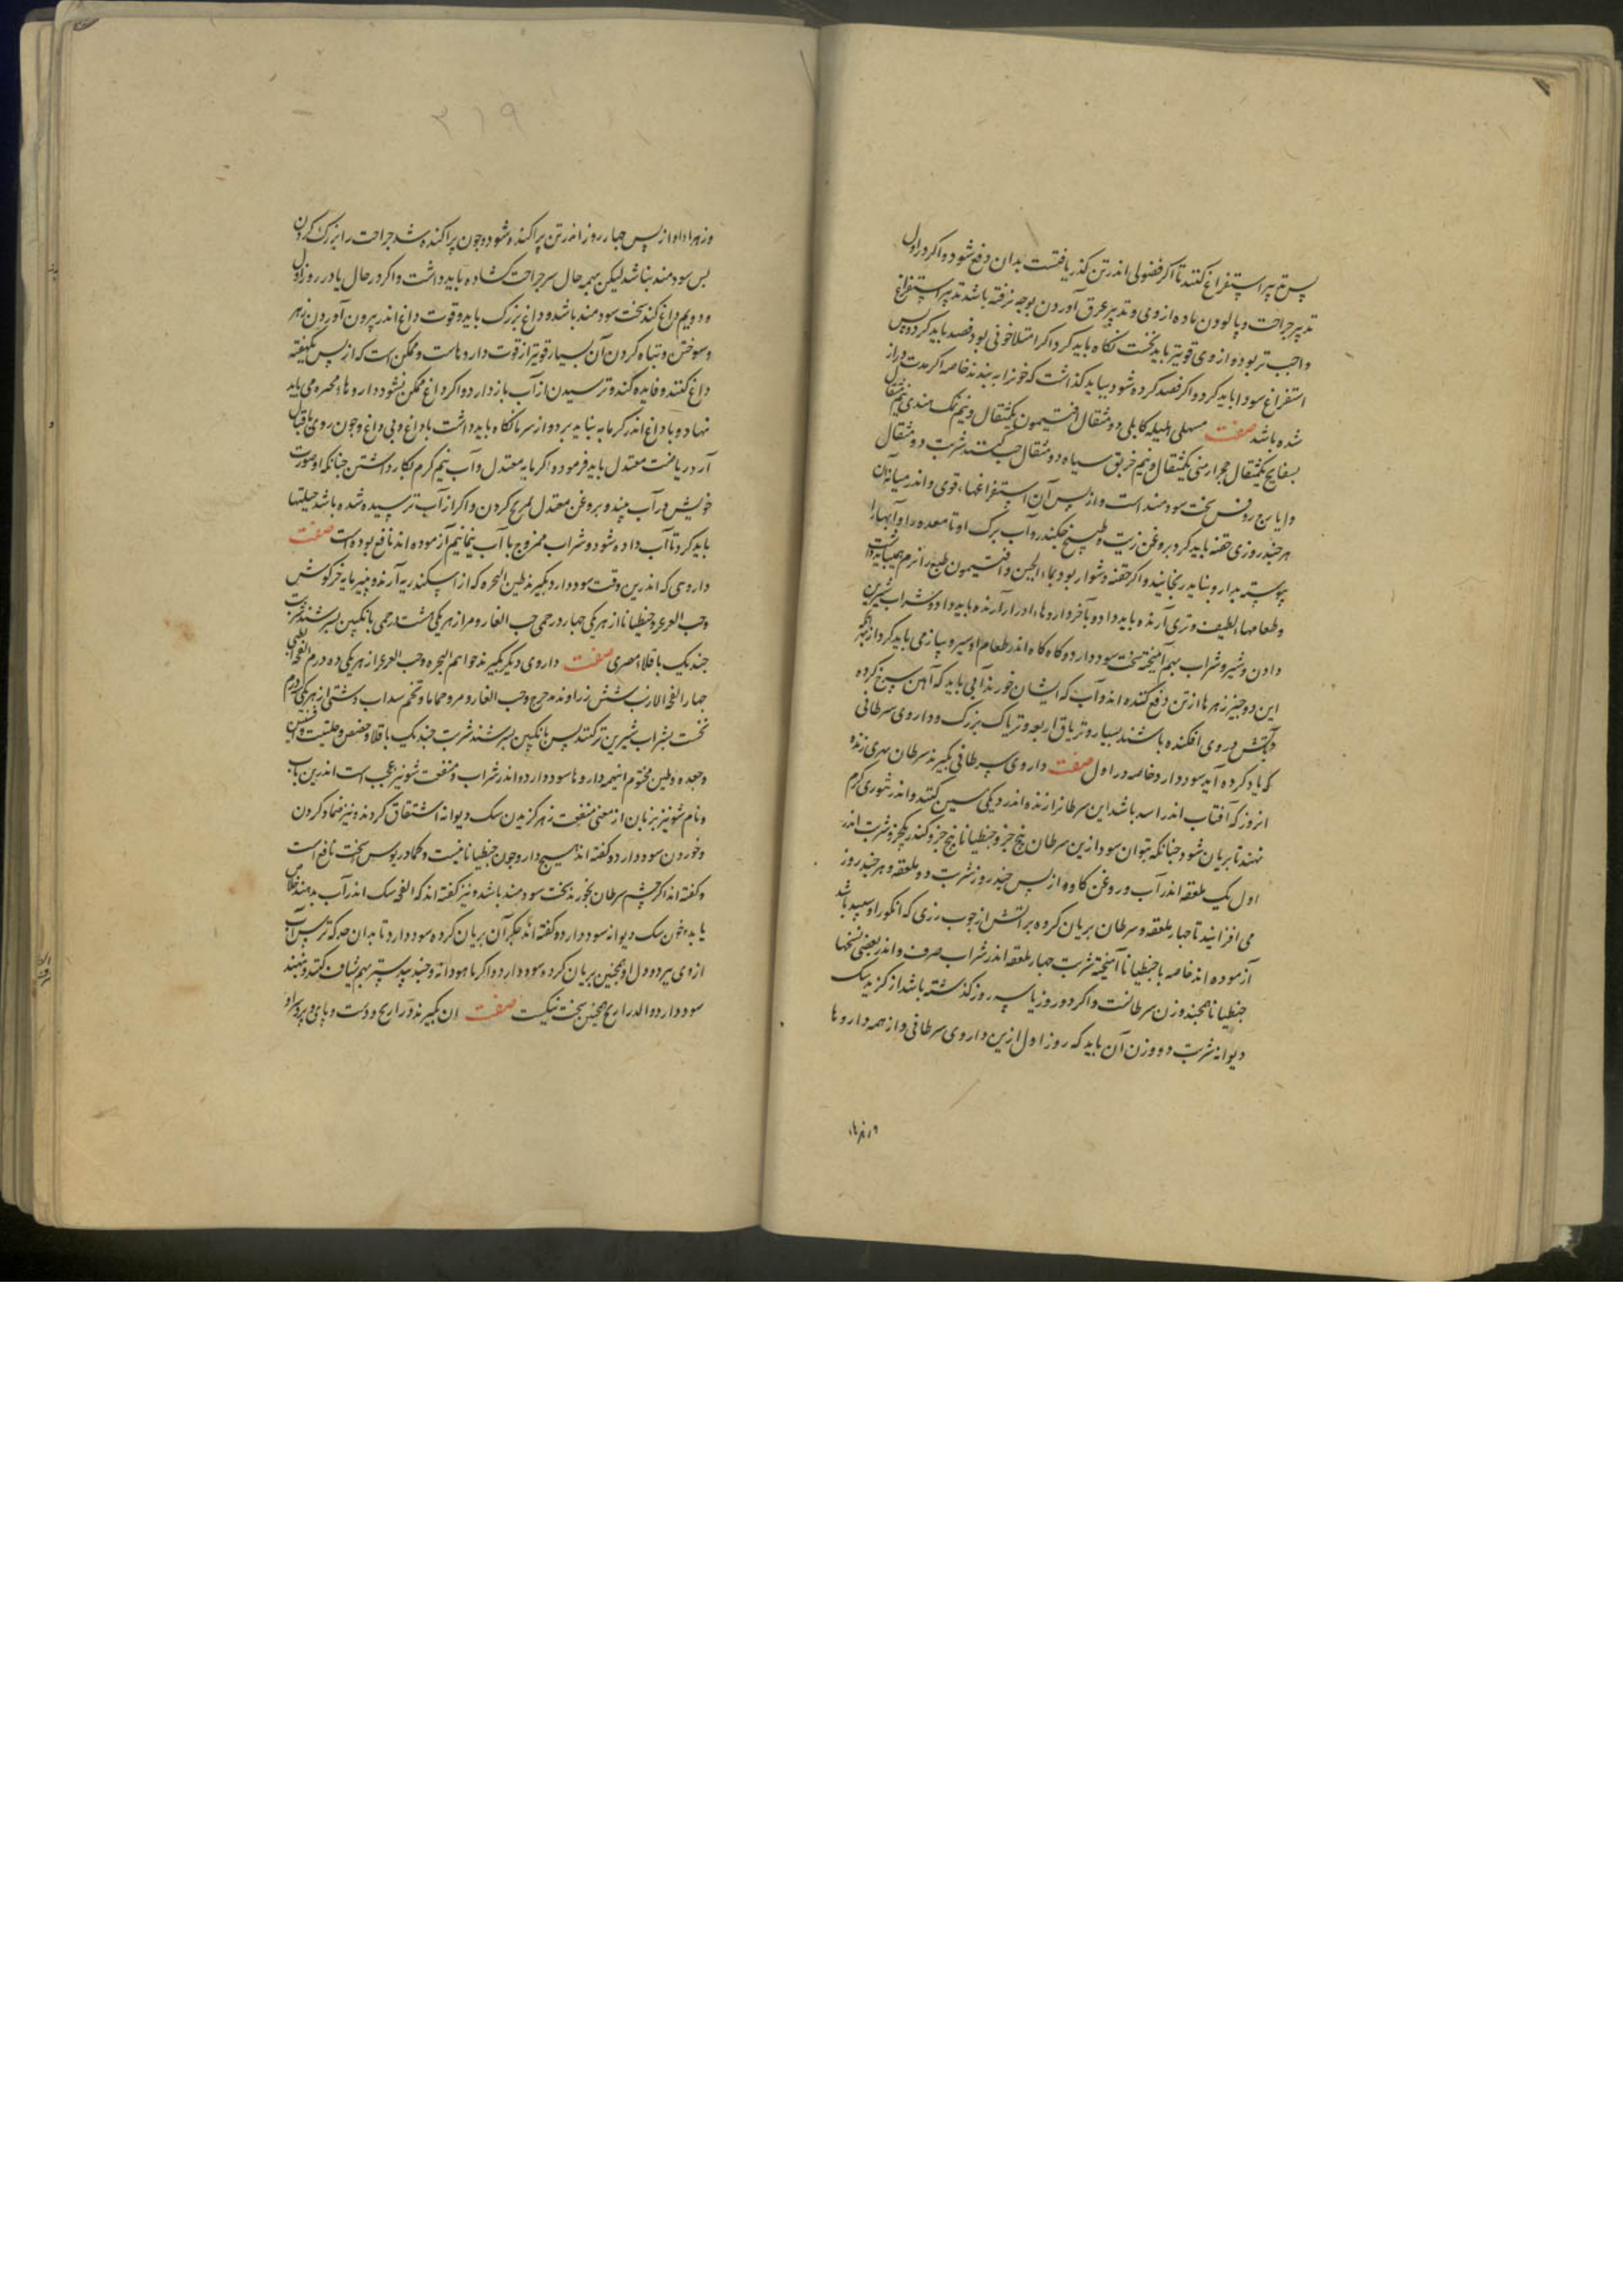 پس تدبیر استفراغ کنند تا اکر فضولی اندر تن کذر یافتست بدان دفع شود و اکر در اول
تدبیر جراحت و پالودن ماده از وی و تدبیر عرق آوردن بوجه نرفته باشد تدبیر استفراغ
واجب تر بود و از وی قویتر باید نخست نکاه باید کرد اکر امتلا خونی بود فصد باید کرد و پس
استفراغ سودا باید کرد و اکر فصد کرده شود بباید کذاشت که خونرا به بندند خاصه اکر مدت دراز
شده باشد صفت مسهلی هلیله کابلی دو مثقال افتیمون یکمثقال و نیم نمک هندی نیم مثقال
بسفایج یکمثقال حجر ارمنی یکمثقال و نیم خربق سیاه دو مثقال حب کنند شربت دو مثقال
و ایارج روفس سخت سودمند است و از پس آن استفراغها، قوی و اندر میانه آن
هر چند روزی حقنه باید کرد بروغن زیت و طبیخ چکندر و آب برک او تا معده را و آبها را
پیوسته بدارو نباید رنجانید و اکر حقنه دشوار بود بماء الجبن و افتیمون طبع را نرم همیباید داشت
و طعامها، لطیف و تری آرنده باید داد و بآخر داروها، ادرار آرنده باید داد و شراب شیرین
دادن و شیر و شراب بهم آمیخته سخت سود دارد و کاه کاه اندر طعام او سیر و پیاز می باید کرد از بهر آنکه
این دو چیز زهرها از تن دفع کننده اند و آب که ایشان خورند آبی باید که آهن سرخ کرده
بآتش در وی افکنده باشند بسیار و تریاق اربعه و تریاک بزرک و داروی سرطانی
که یاد کرده آید سود دارد خاصه در اول صفت داروی سرطانی بکیرند سرطان نهری زنده
انروز که آفتاب اندر اسد باشد این سرطانرا زنده اندر دیکی مسین کنند و اندر تنوری کرم
نهند تا بریان شود چنانکه بتوان سود ازین سرطان پنج جزو جنطیانا پنج جزو کندر یکجزو شربت اندر
اول یک ملعقه اندر آب و روغن کاو و از پس چند روز شربت دو ملعقه و هر چند روز
می افزایند تا چهار ملعقه و سرطان بریان کرده بر آتش از چوب رزی که انکور او سپید باشد
آزموده اند خاصه با جنطیانا آمیخته شربت چهار ملعقه اندر شراب صرف و اندر بعضی نسخها
جنطیانا همچند وزن سرطانست و اکر دو روز یا سه روز کذشته باشد از کزیدن سک
دیوانه شربت دو وزن آن باید که روز اول ازین داروی سرطانی و از همه داروها
وزهرها
۳۱۹
و زهرها او از پس چهار روز اندر تن پراکنده شود و چون پراکنده شد جراحت را بزرک کردن
بس سودمند نباشد لیکن بهمه حال سر جراحت کشاده باید داشت و اکر در حال یا در روز اول
و دویم داغ کنند سخت سودمند باشد و داغ بزرک باید و قوت داغ اندر بیرون آوردن زهر
و سوختن و تباه کردن آن بسیار قویتر از قوت داروهاست و ممکن است که از پس یکهفته
داغ کنند و فایده کند و ترسیدن از آب باز دارد و اکر داغ ممکن نشود داروها، محمره می باید
نهاد و با داغ اندر کرمابه نباید برد و از سرما نکاه باید داشت با داغ و بی داغ و چون روی باقبال
آرد ریاضت معتدل باید فرمود و کرمابه معتدل و آب نیم کرم بکار داشتن چنانکه او صورت
خویش در آب بیند و بروغن معتدل تمریخ کردن و اکر از آب ترسیده شده باشد حیلتها
باید کرد تا آب داده شود و شراب ممزوج با آب نیمانیم آزموده اند نافع بوده است صفت
داروی که اندرین وقت سود دارد بکیرند طین البحره که از اسکندریه آرند و پنیر مایه خرکوش
و حب العرعر و جنطیانا از هر یکی چهار درمی حب الغار و مر از هر یکی هشت درمی بانکبین بسرشند شربت
چند یک باقلاء مصری صفت داروی دیکر بکیرند خواتم البحره و حب العرعر از هر یکی ده درم
چهار انفحه الارنب شش زراوند مدحرج و حب الغار و مر و حماما و تخم سداب دشتی از هر یکی درم
نخست بشراب شیرین تر کنند پس بانکبین بسرشند شربت چند یک باقلا و حضض و حلتیت و افسنتین
و جعده و طین مختوم اینهمه داروها سود دارد اندر شراب و منفعت شونیز عجب است اندرین باب
و نام شونیز بزبان از معنی منفعت زهر کزیدن سک دیوانه اشتقاق کردند و نیز ضماد کردن
و خوردن سود دارد و کفته اند هیچ دارو چون جنطیانا نیست و کمادریوس سخت نافع است
و کفته اند اکر چشم سرطان بخورند سخت سودمند باشد و نیز کفته اند که انفحه سک اندر آب بدهند خلاص
یابد و خون سک دیوانه سود دارد و کفته اند جکر آن بریان کرده سود دارد تا بدان حد که ترس آب
از وی ببرد و دل او همچنین بریان کرده سود دارد و اکر ماهودانه و جند بیدستر بهم شیاف کنند و بنهند
سود دارد و الدراریح همچنین سخت نیکست صفت ان بکیرند ذراریح و دست و پای و پر و سر او